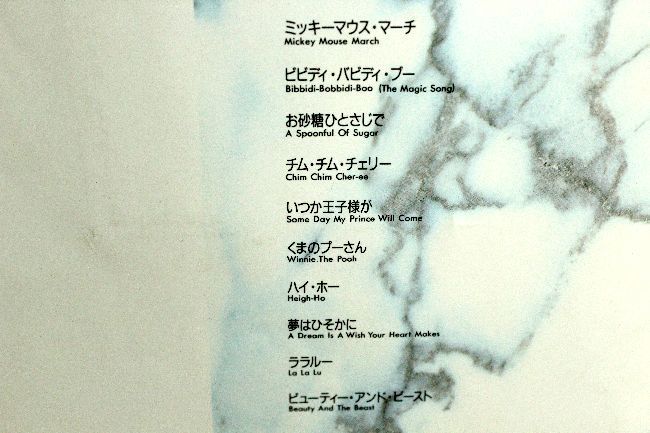 ミッキーマウス・マーチ
Mickey Mouse March
ビビディ・バビディ・ブー
Bibbidi-Bobbidi-Boo (The Magic Song)
お砂糖ひとさじで
A Spoonful Of Sugar
チム・チム・チェリー
Chim Chim Cher-ee
いつか王子様が
Some Day My Prince Will Come
くまのプーさん
Winnie The Pooh
ハイ・ホー
Heigh-Ho
夢はひそかに
A Dream Is A Wish Your Heart Makes
ララルー
La La Lu
ビューティー・アンド・ビースト
Beauty And The Beast